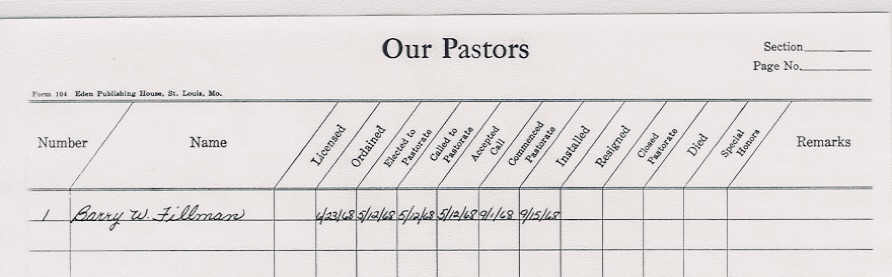 Our Pastors
Section
Page No.
Form 104 Eden Publishing House, St. Louis, Mo.
Number Name Licensed Ordained Elected to Pastorate Called to Pastorate Accepted Call Commenced Pastorate Installed Resigned Closed Pastorate Died Special Honors Remarks
1 Barry W. Fillman 4/23/68 5/12/68 5/12/68 5/12/68 9/1/68 9/15/68